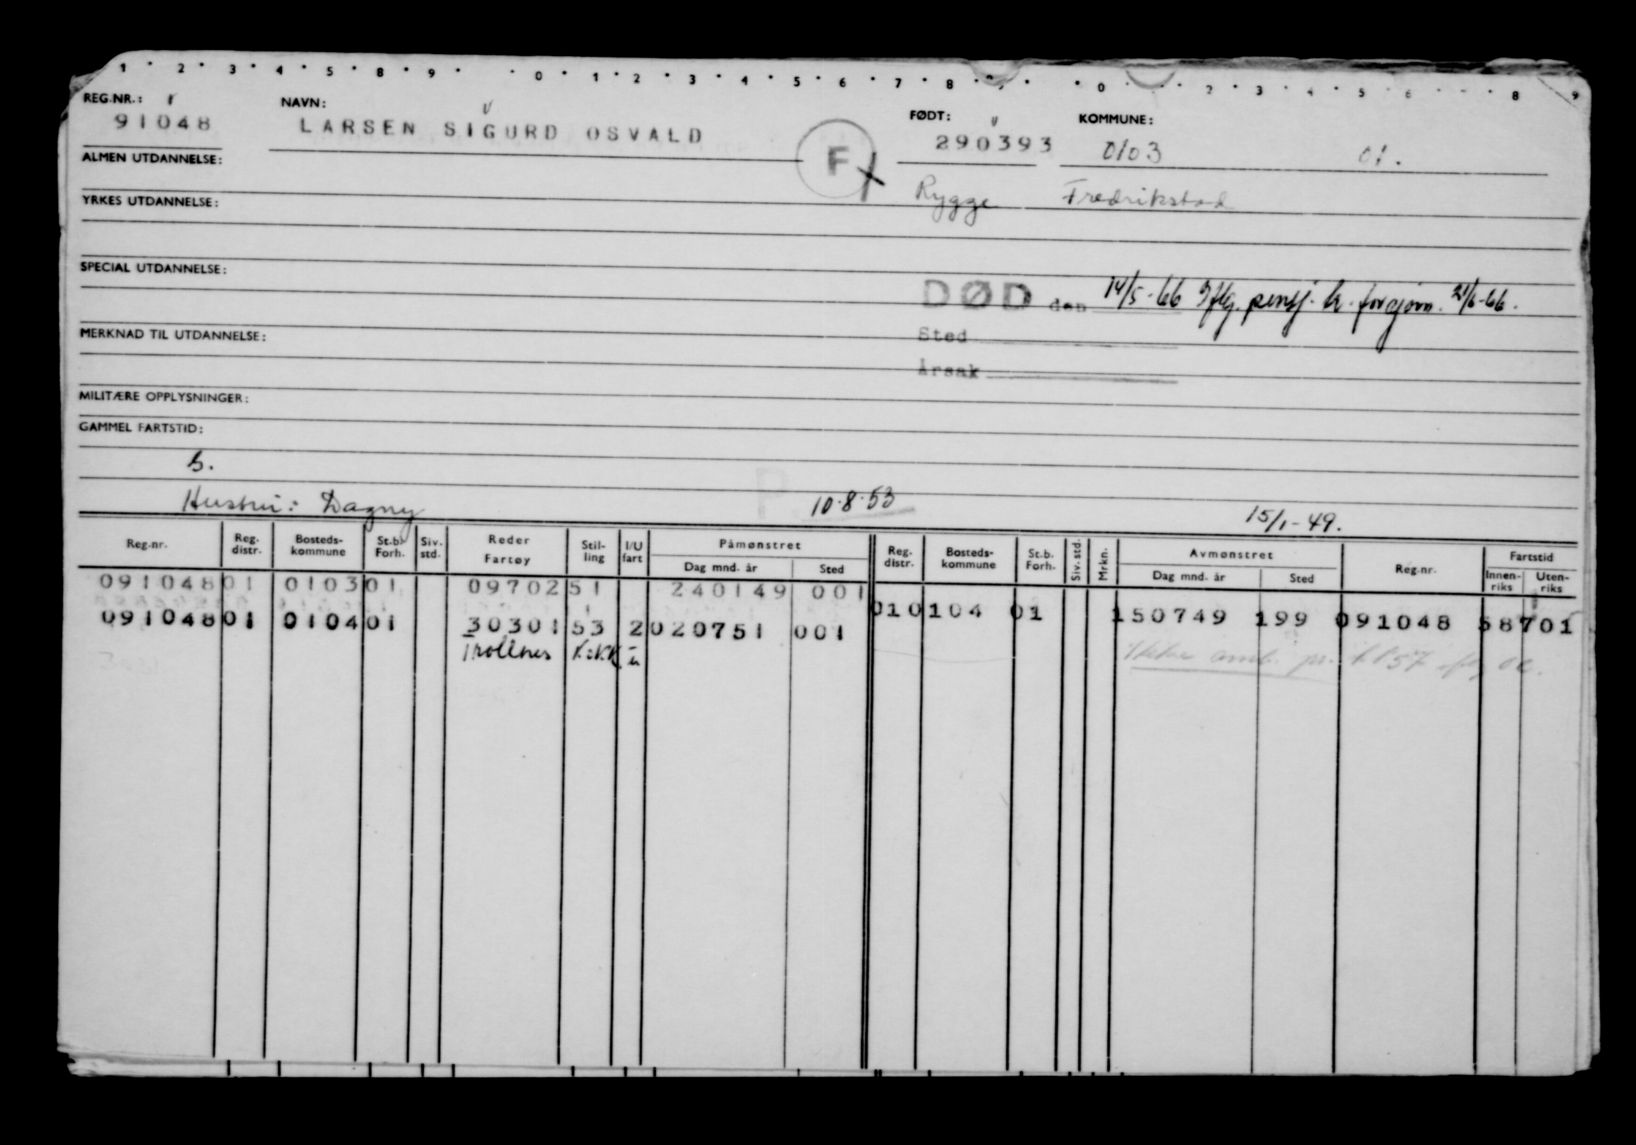 1 2 3 4 5 8 9 0 1 2 3 4 5 6 7 8 9 0 2 3 4 5 6 8 9
REG.NR.: NAVN: FØDT: KOMMUNE:
91048 LARSEN SIGURD OSVALD 290393 0103 01.
F
ALMEN UTDANNELSE:
Rygge Fredrikstad
YRKES UTDANNELSE:
SPECIAL UTDANNELSE:
DØD den 14/5-66 iflg. pensj. forgjøvn. 21/6-66.
MERKNAD TIL UTDANNELSE: Sted
Årsak
MILITÆRE OPPLYSNINGER:
GAMMEL FARTSTID:
S.
Hustru: Dagny P 10.8.53 15/1-49.
Reg.nr. Reg. distr. Bosteds-kommune St.b. Forh. Siv. std. Reder Fartøy Stil-ling I/U fart Påmønstret Dag mnd. år Sted Reg. distr. Bosteds-kommune St.b. Forh. Siv. std. Mrkn. Avmønstret Dag mnd. år Sted Reg.nr. Fartstid Innen-riks Uten-riks
091048 01 0103 01 09702 51 240149 001
010104 01 150749 199 091048 58701
091048 01 0104 01 30301 53 2 020751 001
Trollnes Kokk u